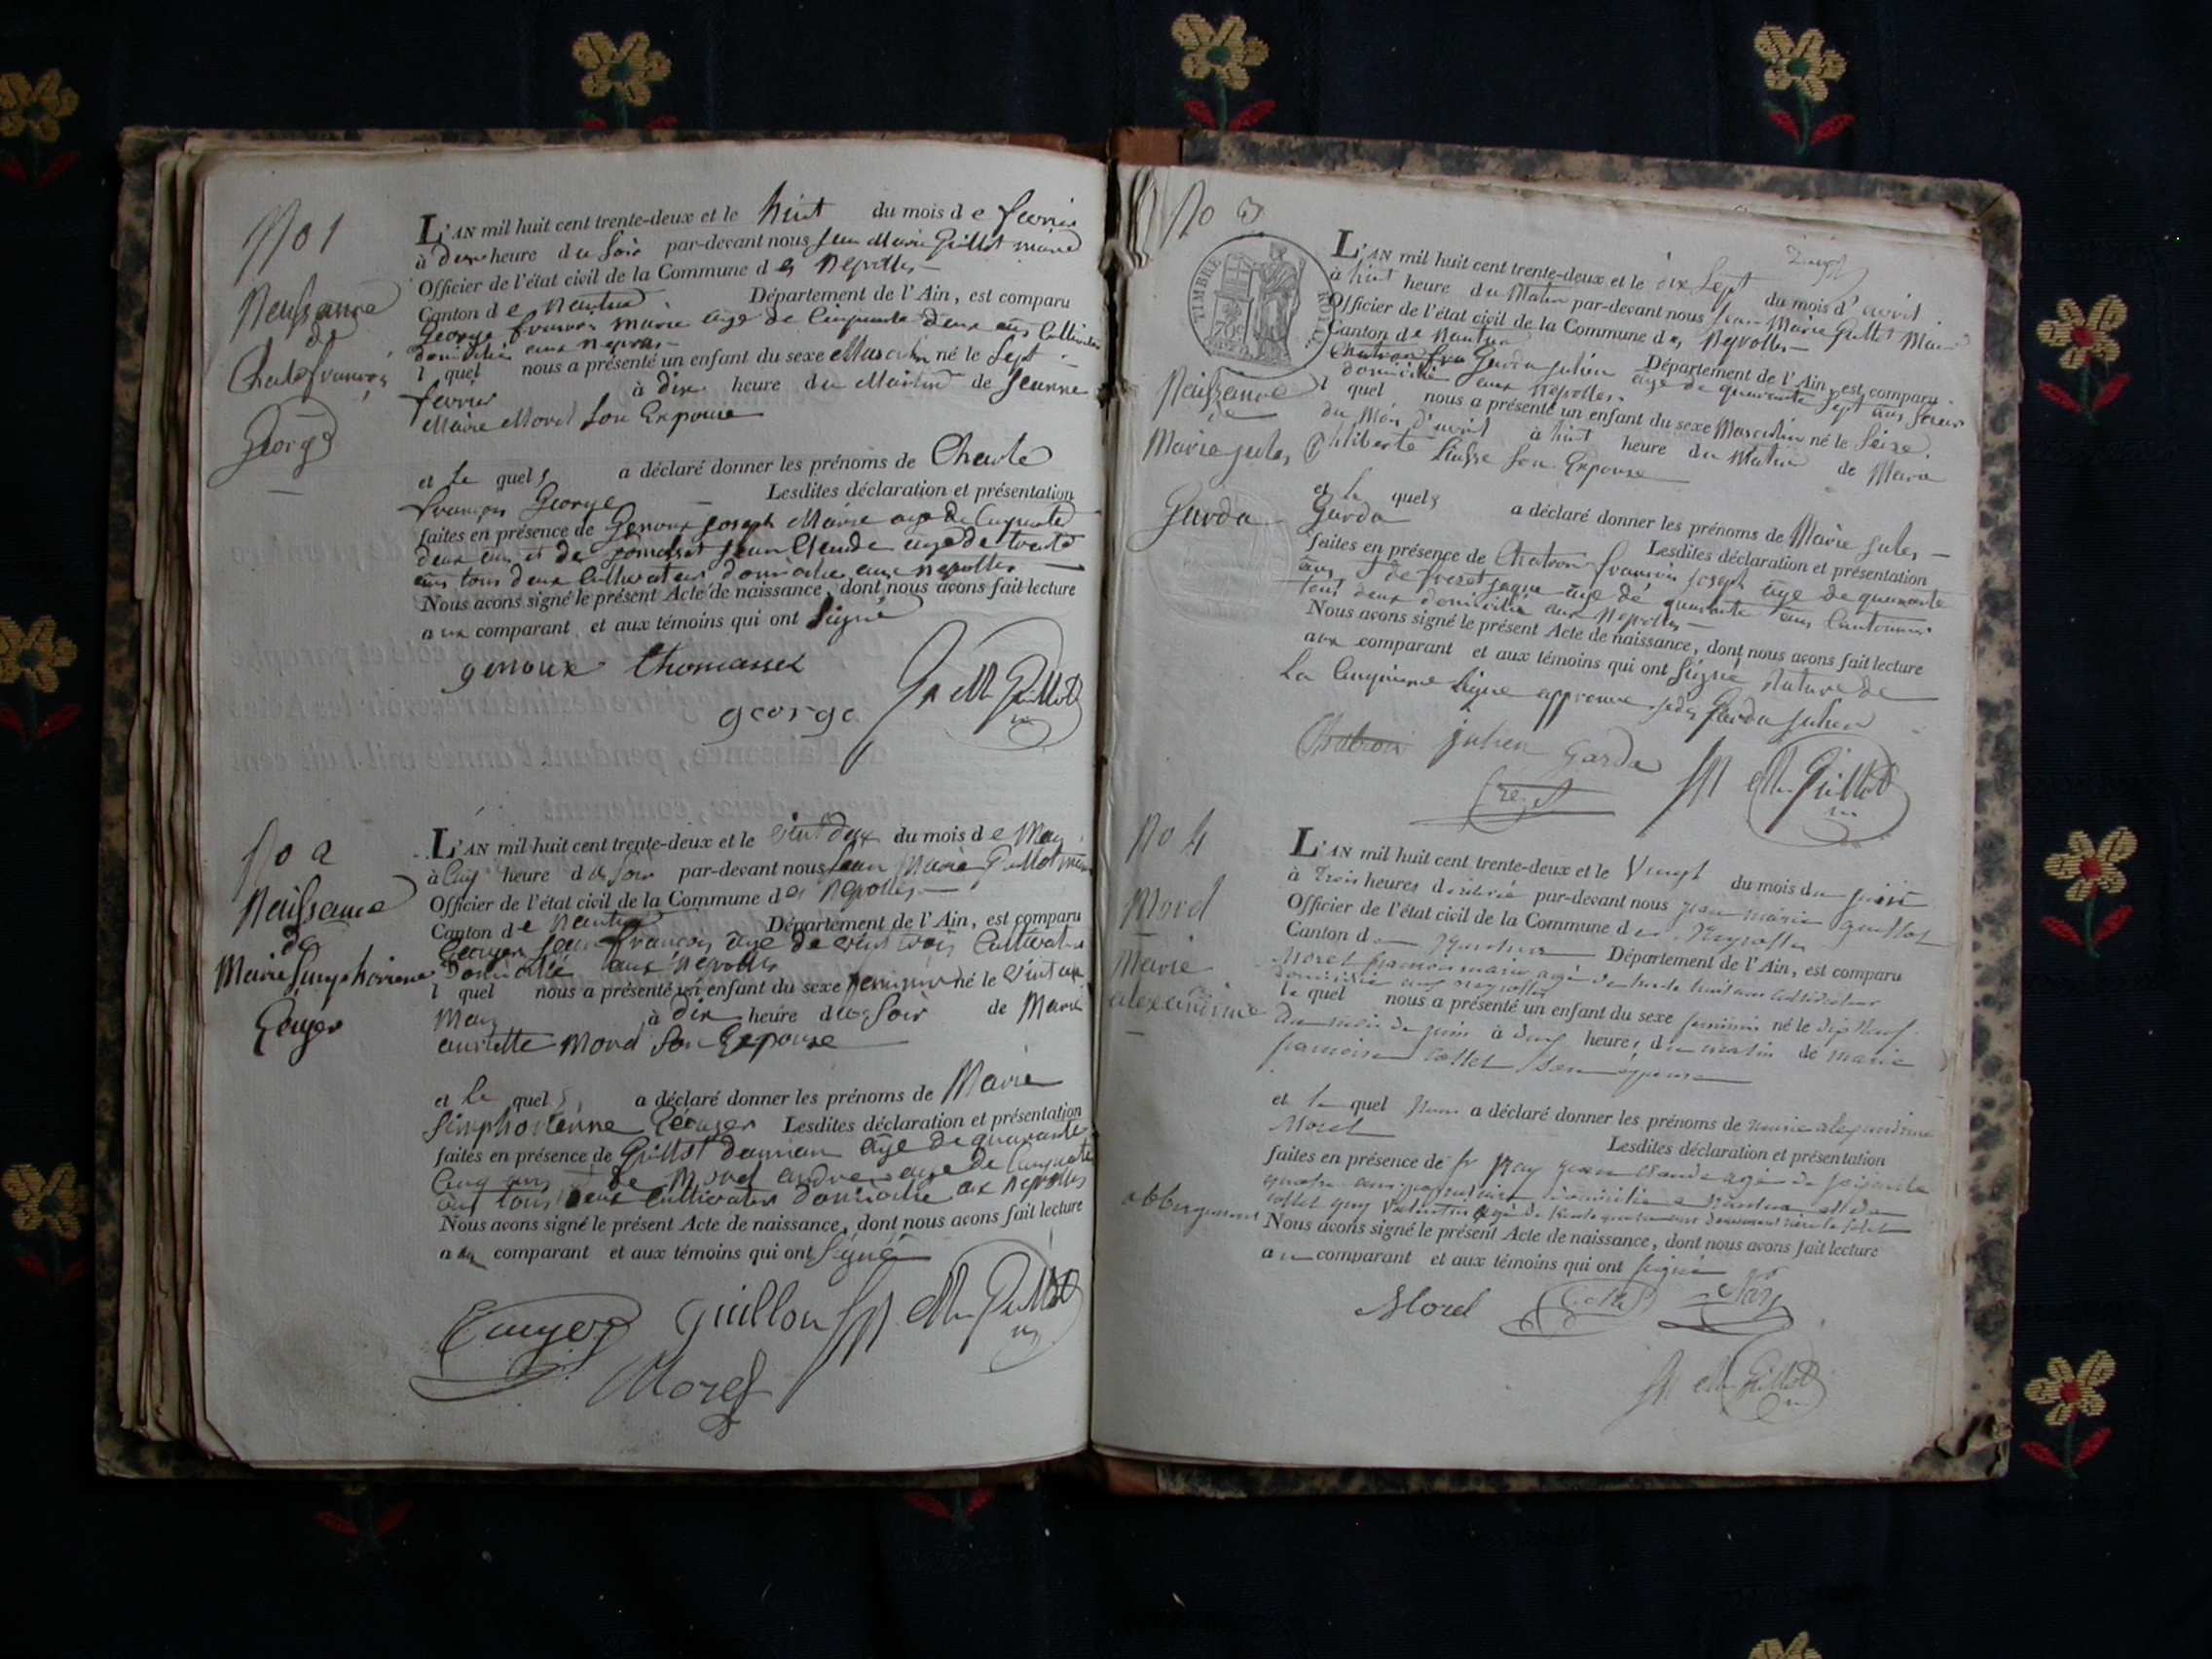 No 1
Naissance
de
Charle françois
George
L'AN mil huit cent trente-deux et le huit du mois de fevrier
à deux heure du Soir par-devant nous jean Marie Guillot maire
Officier de l'état civil de la Commune des Neyrolles
Canton de Nantua Département de l'Ain, est comparu
George françois marie age de Cinquante deux ans Cultivateur
domicilié aux neyrolles
l quel nous a présenté un enfant du sexe Masculin né le Sept
fevrier à dix heure du Matin de Jeanne
Marie Morel Son Expouse
et le quel a déclaré donner les prénoms de Charle
françois George Lesdites déclaration et présentation
faites en présence de Genoux joseph Marie age de Cinquante
deux ans et de jean Claude age de trente
ans tous deux Cultivateur domicilie aux neyrolles
Nous avons signé le présent Acte de naissance, dont nous avons fait lecture
aux comparant et aux témoins qui ont Signé
genoux thomasset
george J M Guillot
No 2
Naissance
de
Marie Simphorienne
L'AN mil huit cent trente-deux et le vint deux du mois de May
à Cinq heure du Soir par-devant nous Jean Marie Guillot maire
Officier de l'état civil de la Commune des Neyrolles
Canton de Nantua Département de l'Ain, est comparu
jean françois age de vint trois Cultivateur
Domicilié aux Neyrolles
l quel nous a présenté un enfant du sexe feminin né le vint un
May à dix heure du Soir de Marie
Morel Son Expouse
et le quel a déclaré donner les prénoms de Marie
Simphorienne Lesdites déclaration et présentation
faites en présence de Guillot damian age de quarante
Cinq ans et de Morel andre age de Cinquante
ans tous deux Cultivateur domicilie aux neyrolles
Nous avons signé le présent Acte de naissance, dont nous avons fait lecture
au comparant et aux témoins qui ont Signé
Guillou J M Guillot
Morel
No 3
TIMBRE ROYAL
70c
Naissance
de
Marie jules
Garda
L'AN mil huit cent trente-deux et le dix Sept du mois d'avril
à huit heure du Matin par-devant nous jean Marie Guillot Maire
Officier de l'état civil de la Commune des Neyrolles
Canton de Nantua Département de l'Ain, est comparu
Garda julien age de quarante Sept ans
domicilié aux Neyrolles
l quel nous a présenté un enfant du sexe Masculin né le Seize
du Mois d'avril à huit heure du Matin de Marie
Philiberte Son Expouse
et le quel a déclaré donner les prénoms de Marie jules
Garda Lesdites déclaration et présentation
faites en présence de Chatron françois joseph age de quarante
ans de age de quarante ans
tous deux domicilie aux Neyrolles
Nous avons signé le présent Acte de naissance, dont nous avons fait lecture
aux comparant et aux témoins qui ont Signé
La Cinquieme Ligne approuve Garda julien
Chatron julien Garda J M Guillot
No 4
Morel
Marie
alexandrine
L'AN mil huit cent trente-deux et le Vingt du mois de juin
à Trois heures par-devant nous jean marie guillot
Officier de l'état civil de la Commune des Neyrolles
Canton de Nantua Département de l'Ain, est comparu
Morel françois marie agé de trente huit ans cultivateur
domicilié aux neyrolles
le quel nous a présenté un enfant du sexe feminin né le dix neuf
du mois de juin à heures du matin de marie
françoise Collet son épouse
et le quel nous a déclaré donner les prénoms de marie alexandrine
Morel Lesdites déclaration et présentation
faites en présence de jean claude agé de soixante
quatre ans domicilié à Nantua et de
collet guy agé de trente quatre ans
Nous avons signé le présent Acte de naissance, dont nous avons fait lecture
au comparant et aux témoins qui ont Signé
Morel
J M Guillot